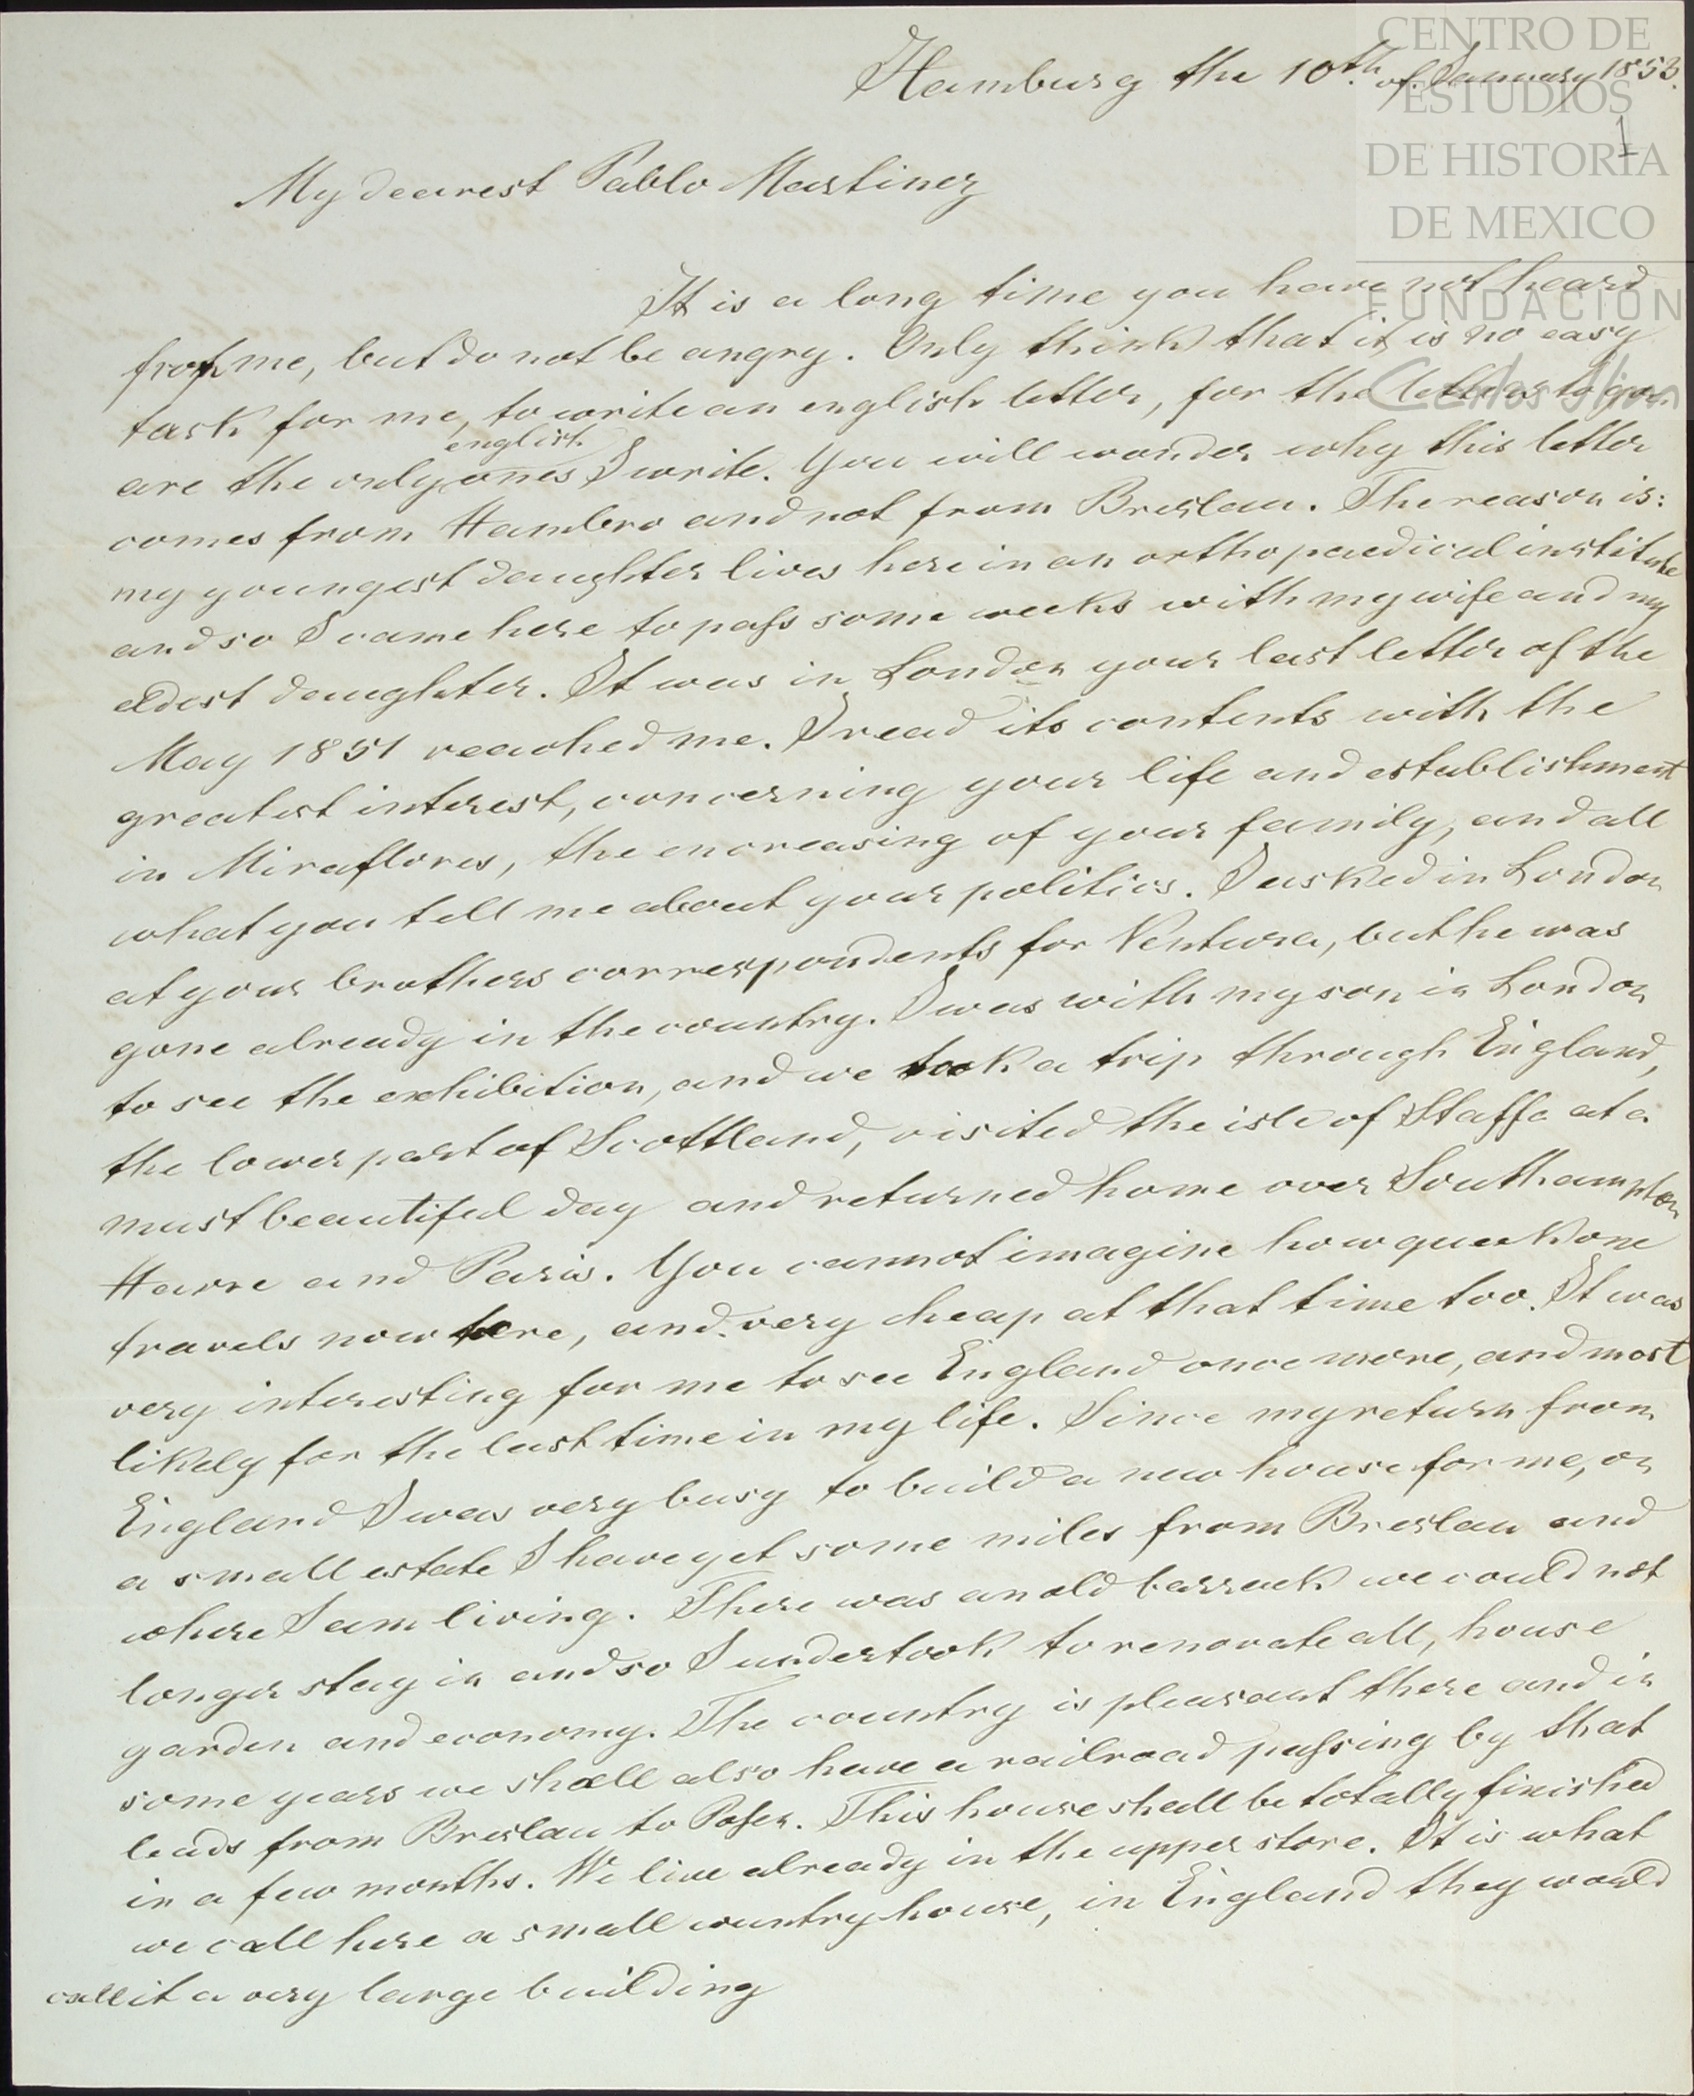 Hamburg the 10th of January 1853.
1
My dearest Pablo Martinez
It is a long time you have not heard
from me, but do not be angry. Only think that it is no easy
task for me, to write an english letter, for the letters to you
english
are the only ones I write. You will wonder why this letter
comes from Hambro and not from Breslau. The reason is:
my youngest daughter lives here in an orthopaedical institute
and so I came here to pass some weeks with my wife and my
eldest daughter. It was in London your last letter of the
May 1851 reached me. I read its contents with the
greatest interest, concerning your life and establishment
in Miraflores, the encreasing of your family, and all
what you tell me about your politics. I asked in London
at your brothers correspondents for Ventura, but he was
gone already in the country. I was with my son in London
to see the exhibition, and we took a trip through England,
the lower part of Scottland, visited the isle of Staffa at a
most beautiful day and returned home over Southampton
Havre and Paris. You cannot imagine how quick one
travels now here, and very cheap at that time too. It was
very interesting for me to see England once more, and most
likely for the last time in my life. Since my return from
England I was very busy to build a new house for me, on
a small estate I have yet some miles from Breslau and
where I am living. There was an old barrack we could not
longer stay in and so I undertook to renovate all, house
garden and economy. The country is pleasant there and in
some years we shall also have a railroad passing by that
leads from Breslau to Posen. This house shall be totally finished
in a few months. We live already in the upper store. It is what
we call here a small country house, in England they would
call it a very large building
CENTRO DE
ESTUDIOS
DE HISTORIA
DE MEXICO
FUNDACION
Carlos Slim